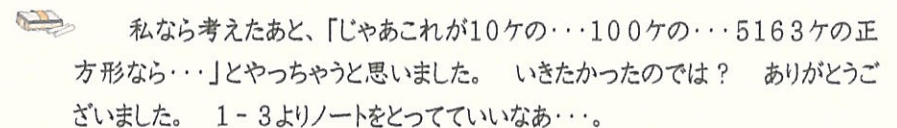 私なら考えたあと、「じゃあこれが10ケの・・・100ケの・・・5163ケの正
方形なら・・・」とやっちゃうと思いました。　いきたかったのでは？　ありがとうご
ざいました。　1-3よりノートをとってていいなあ・・・。